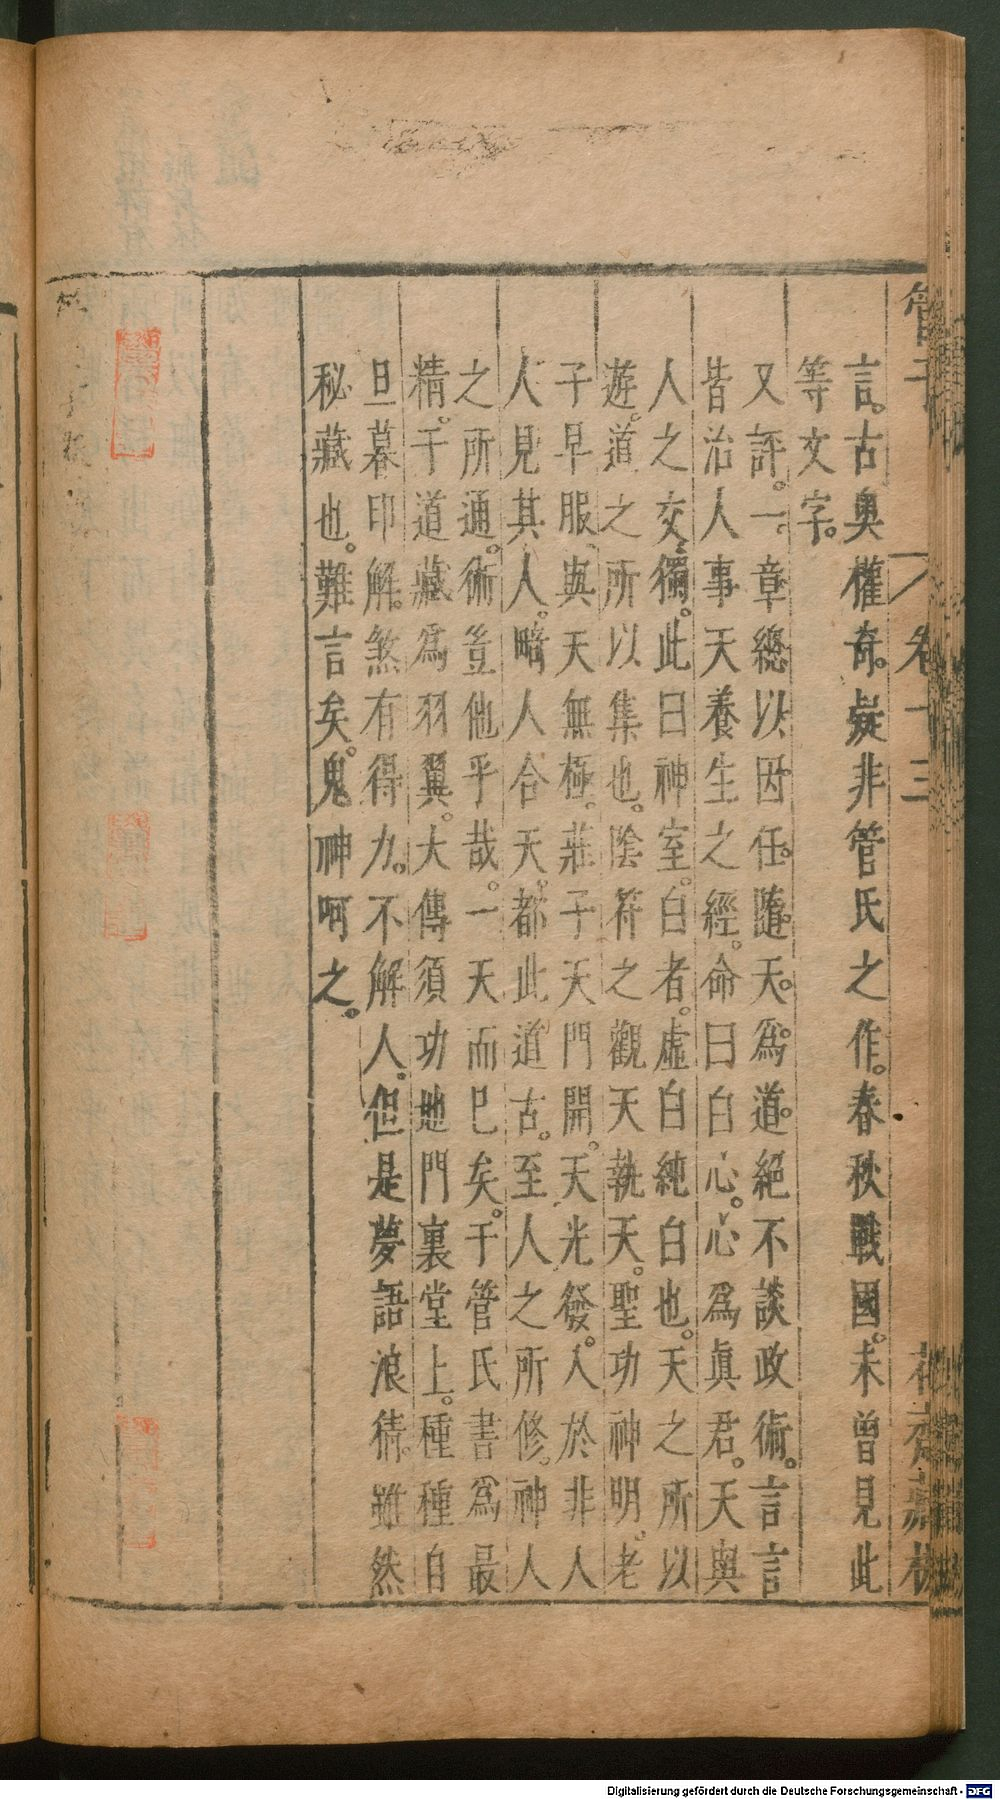 管子
卷十三
花齋藏板
言。古奧權奇。疑非管氏之作。春秋戰國。未曾見此
等文字。
又評。一章總以因任。隨天。爲道。絕不談政術。言言
皆治人事天養生之經。命曰白心。心爲眞君。天與
人之交。獨。此曰神室。白者。虛白純白也。天之所以
遊。道之所以集也。陰符之觀天執天。聖功神明。老
子早服。與天無極。莊子天門開。天光發。人於非人
人見其人。略人合天。都此道古。至人之所修。神人
之所通。術豈他乎哉。一天而巳矣。于管氏書爲最
精。千道藏爲羽翼。大傳須功地門裏堂上。種種自
旦暮印解。煞有得力。不解人。但是夢語浪猜。雖然
秘藏也。難言矣。鬼神呵之。
Digitalisierung gefördert durch die Deutsche Forschungsgemeinschaft - DFG